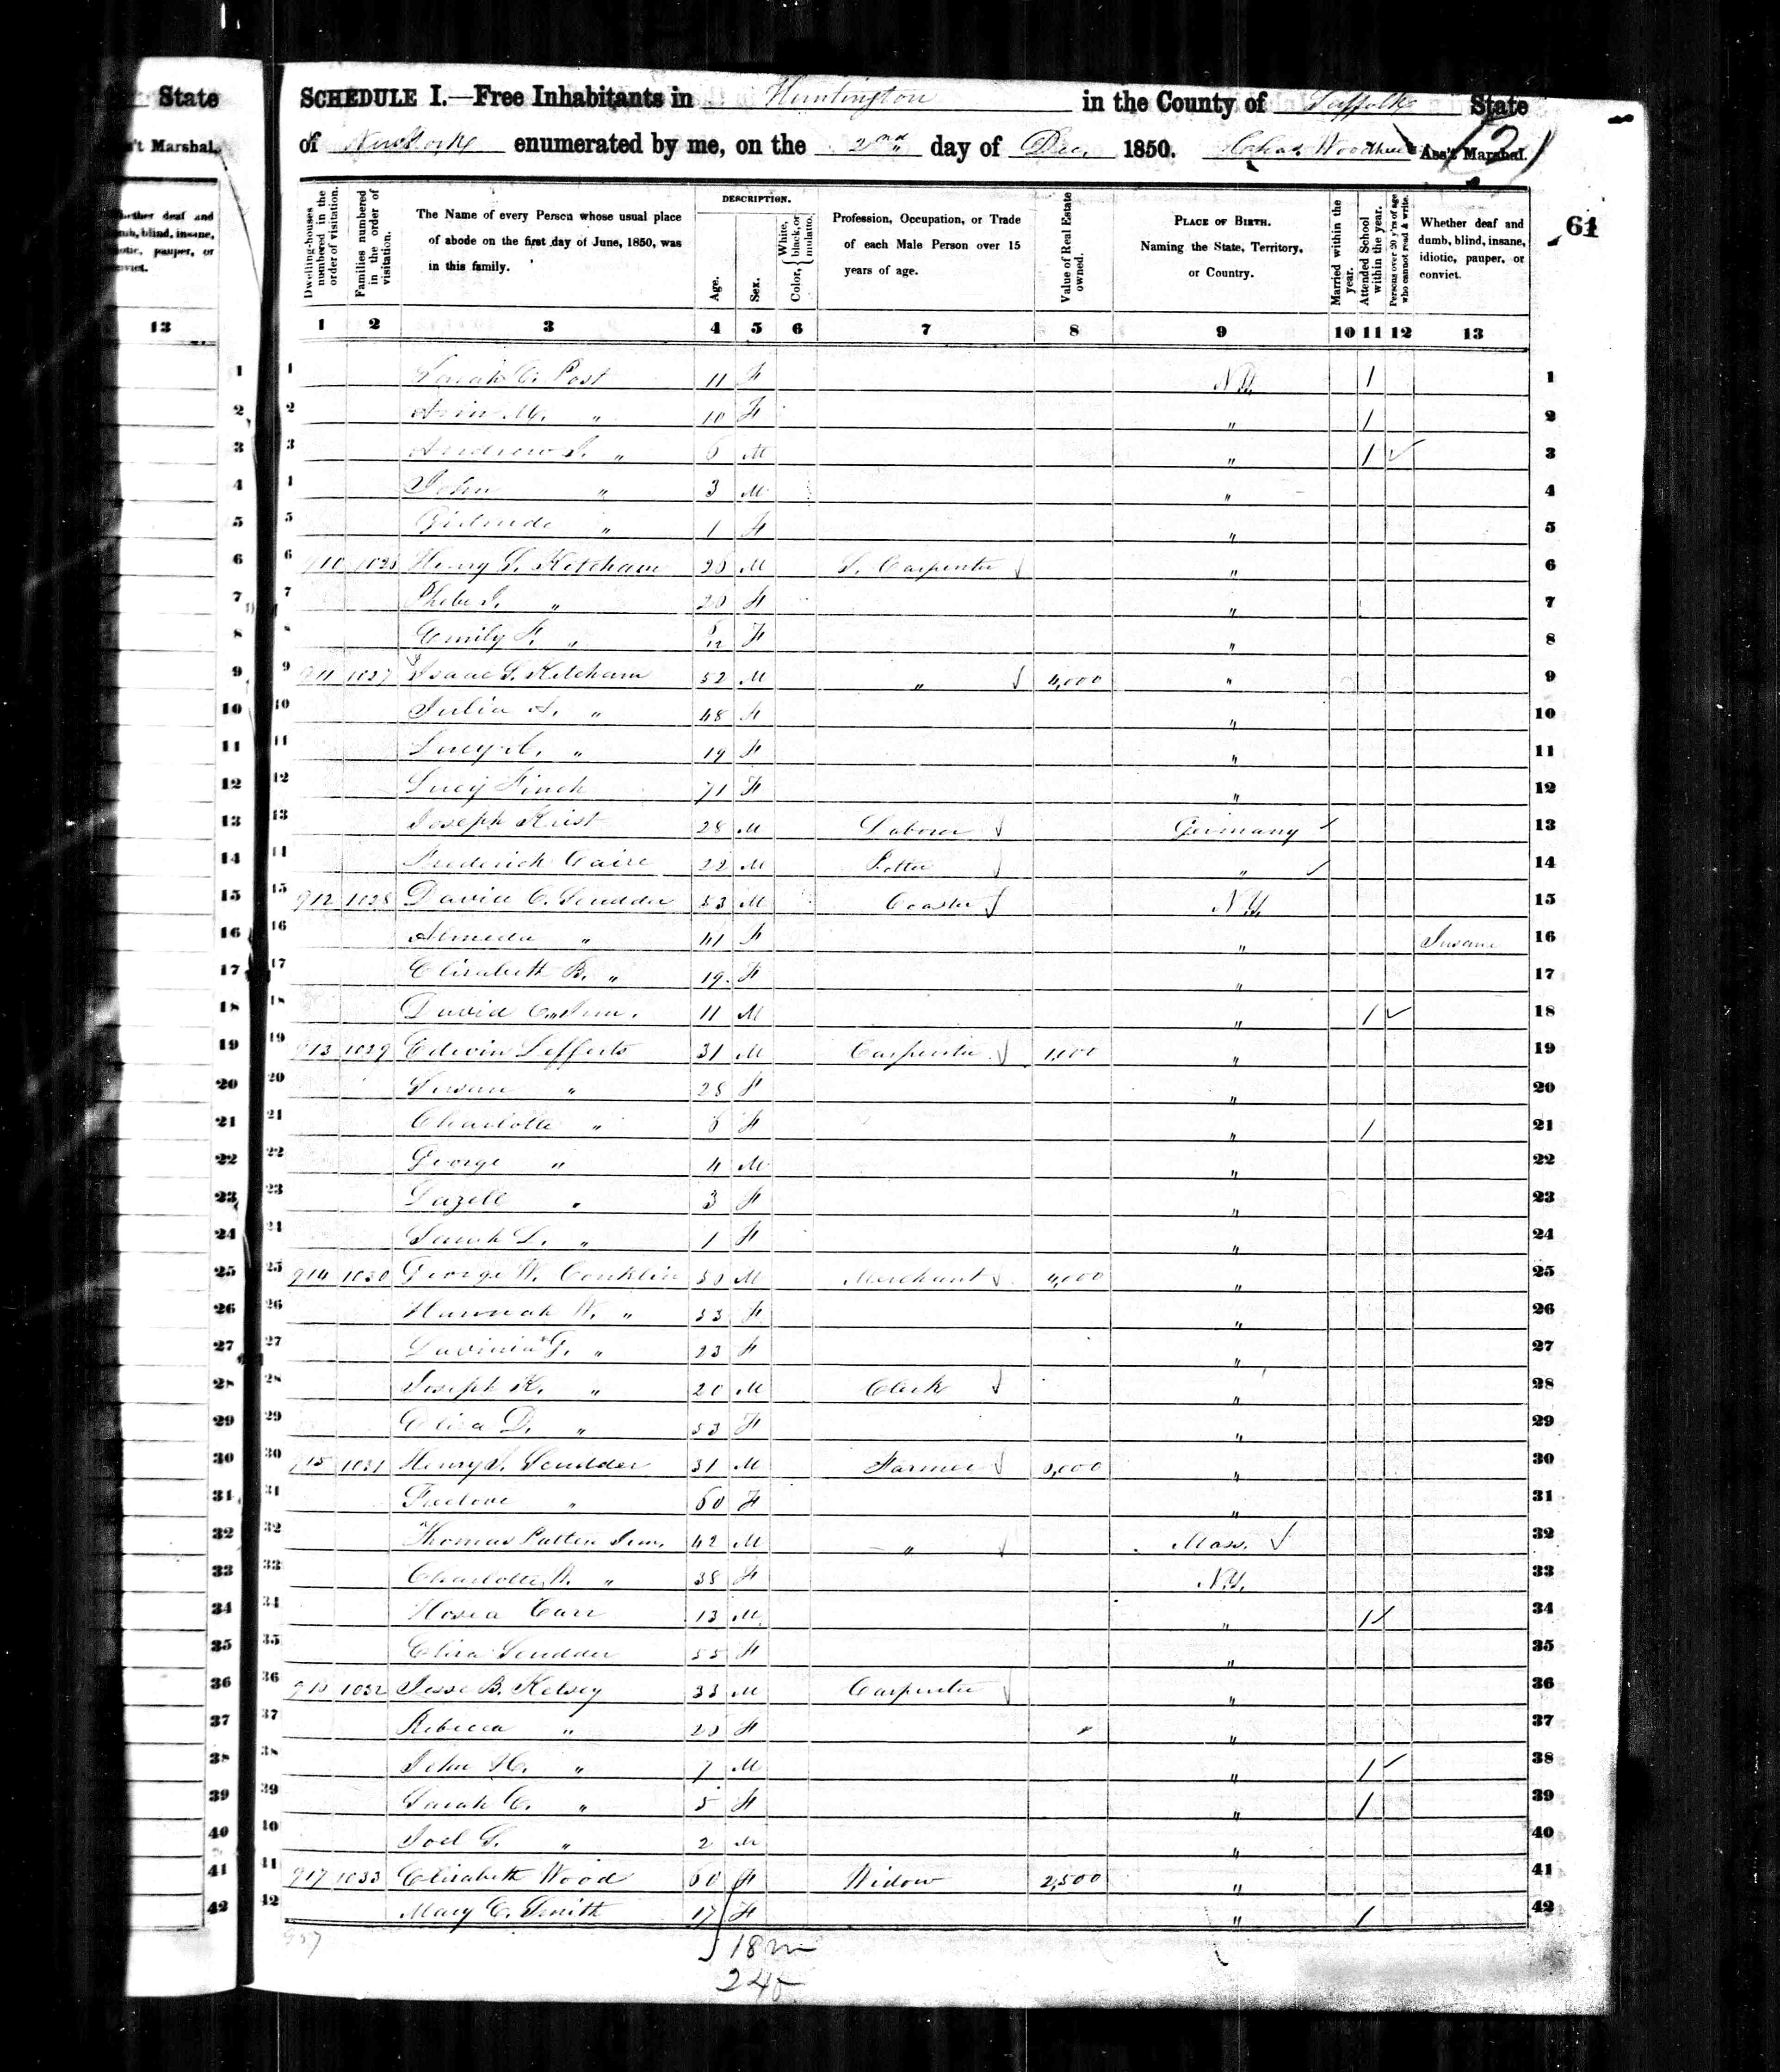 State
't Marshal.
SCHEDULE I.—Free Inhabitants in Huntington in the County of Suffolk State
of New York enumerated by me, on the 2nd day of Dec. 1850. Chas. Woodhull Ass't Marshal.
61
Dwelling-houses numbered in the order of visitation.
Families numbered in the order of visitation.
The Name of every Person whose usual place of abode on the first day of June, 1850, was in this family.
DESCRIPTION.
Age.
Sex.
Color, { White, black, or mulatto.
Profession, Occupation, or Trade of each Male Person over 15 years of age.
Value of Real Estate owned.
PLACE OF BIRTH. Naming the State, Territory, or Country.
Married within the year.
Attended School within the year.
Persons over 20 y'rs of age who cannot read & write.
Whether deaf and dumb, blind, insane, idiotic, pauper, or convict.
13
1 2 3 4 5 6 7 8 9 10 11 12 13
1 Sarah C. Post 11 F N.Y. 1 1
2 Ann M. " 10 F " 1 2
3 Andrew S. " 6 M " 1 ✓ 3
4 John " 3 M " 4
5 Gertrude " 1 F " 5
6 910 1026 Henry S. Ketcham 26 M S. Carpenter " 6
7 Phebe J. " 20 F " 7
8 Emily F. " F " 8
9 911 1027 Isaac S. Ketcham 52 M " 4,000 " 9
10 Julia A. " 48 F " 10
11 Lucy A. " 19 F " 11
12 Lucy Finch 71 F " 12
13 Joseph Krist 28 M Laborer Germany 13
14 Frederick Caire 22 M Potter " 14
15 912 1028 David C. Scudder 53 M Coaster N.Y. 15
16 Almeda " 41 F " Insane 16
17 Elizabeth B. " 19 F " 17
18 David C. Jun. 11 M " 1 ✓ 18
19 913 1029 Edwin Lefferts 31 M Carpenter 1,100 " 19
20 Susan " 28 F " 20
21 Charlotte " 6 F " 1 21
22 George " 4 M " 22
23 Dazell " 3 F " 23
24 Sarah L. " 1 F " 24
25 914 1030 George W. Conklin 50 M Merchant 4,000 " 25
26 Hannah W. " 53 F " 26
27 Lavinia G. " 23 F " 27
28 Joseph K. " 20 M Clerk " 28
29 Eliza D. " 53 F " 29
30 915 1031 Henry J. Scudder 31 M Farmer " 30
31 Freelove " 60 F " 31
32 Thomas Patten Jun. 42 M " Mass. 32
33 Charlotte A. " 38 F N.Y. 33
34 Hosea Carr 13 M " 1 ✓ 34
35 Eliza Scudder 55 F " 35
36 916 1032 Jesse B. Kelsey 33 M Carpenter " 36
37 Rebecca " F " 37
38 John H. " 7 M " 1 ✓ 38
39 Sarah C. " 5 F " 1 39
40 Joel S. " 2 M " 40
41 917 1033 Elizabeth Wood 60 F Widow 2,500 " 41
42 Mary C. Smith 17 F " 1 42
18 m
24 f